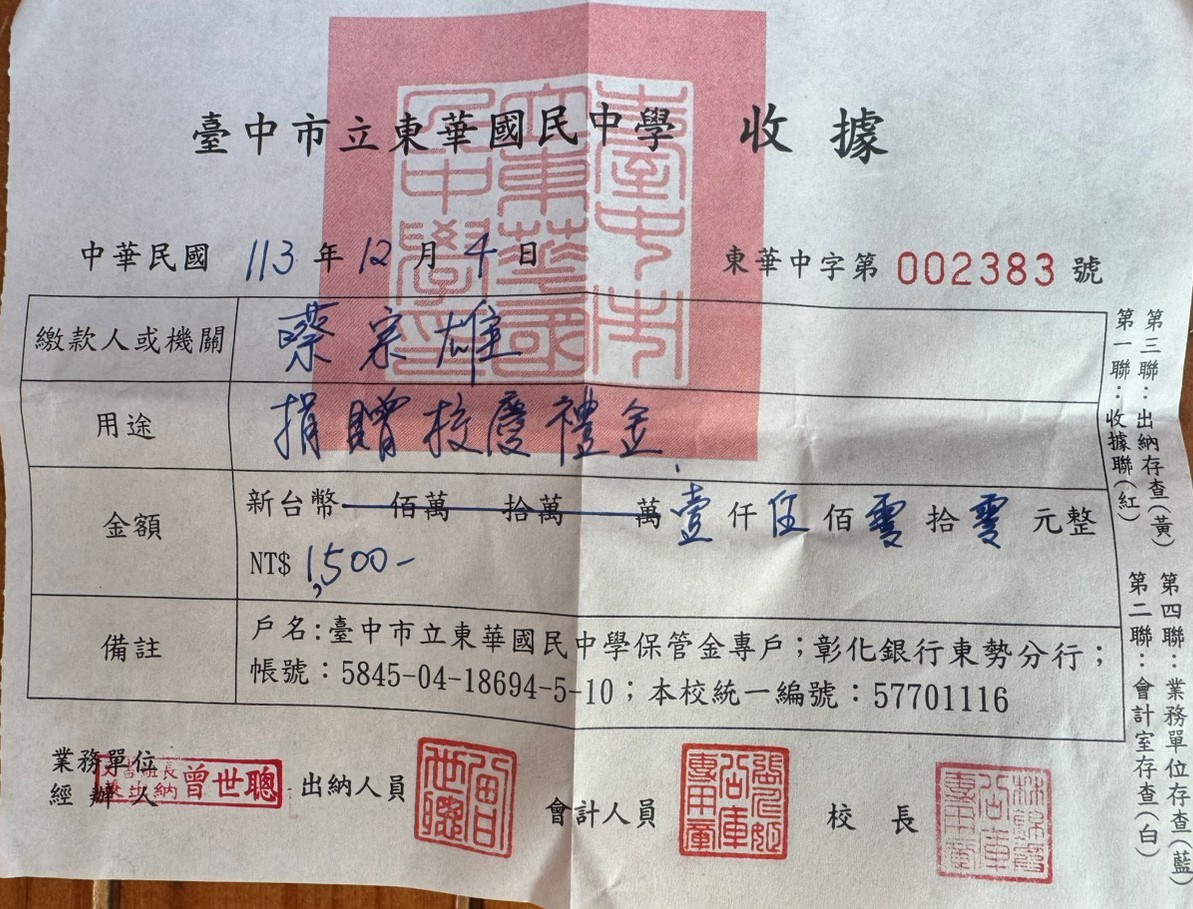 臺中市立東華國民中學 收據
中華民國 113 年 12 月 4 日 東華中字第 002383 號
繳款人或機關 蔡宗雄
用途 捐贈校慶禮金
金額 新台幣 佰萬 拾萬 萬 壹 仟 伍 佰 零 拾 零 元整
NT$ 1,500-
備註 戶名:臺中市立東華國民中學保管金專戶;彰化銀行東勢分行;
帳號:5845-04-18694-5-10;本校統一編號:57701116
第一聯:收據聯(紅)
第三聯:出納存查(黃)
第二聯:會計室存查(白)
第四聯:業務單位存查(藍)
業務單位
經辦人
曾世聰
出納人員
曾世聰
會計人員
校長
臺中市立東華國民中學印